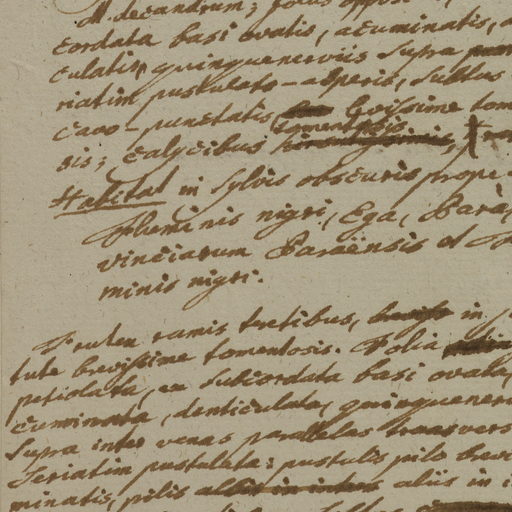 M. decandrum; foliis opposit
cordata basi ovatis, acuminatis,
culatis, quinquenerviis supra
riatim pustulato-asperis, subtus
cavo-punctatis, brevissime tom
sis; calycibus tomentosis
Habitat in sylvis obscuris prope
Fluminis nigri, Ega, Pará,
vinciarum Paraënsis et
minis nigri.
Frutex ramis teretibus, in
tute brevissime tomentosis. Folia
petiolata, ex subcordata basi ovata,
cuminata, denticulata, quinquenerv
supra inter venas parallelas transvers
seriatim pustulata: pustulis pilo
minatis, pilis aliis in